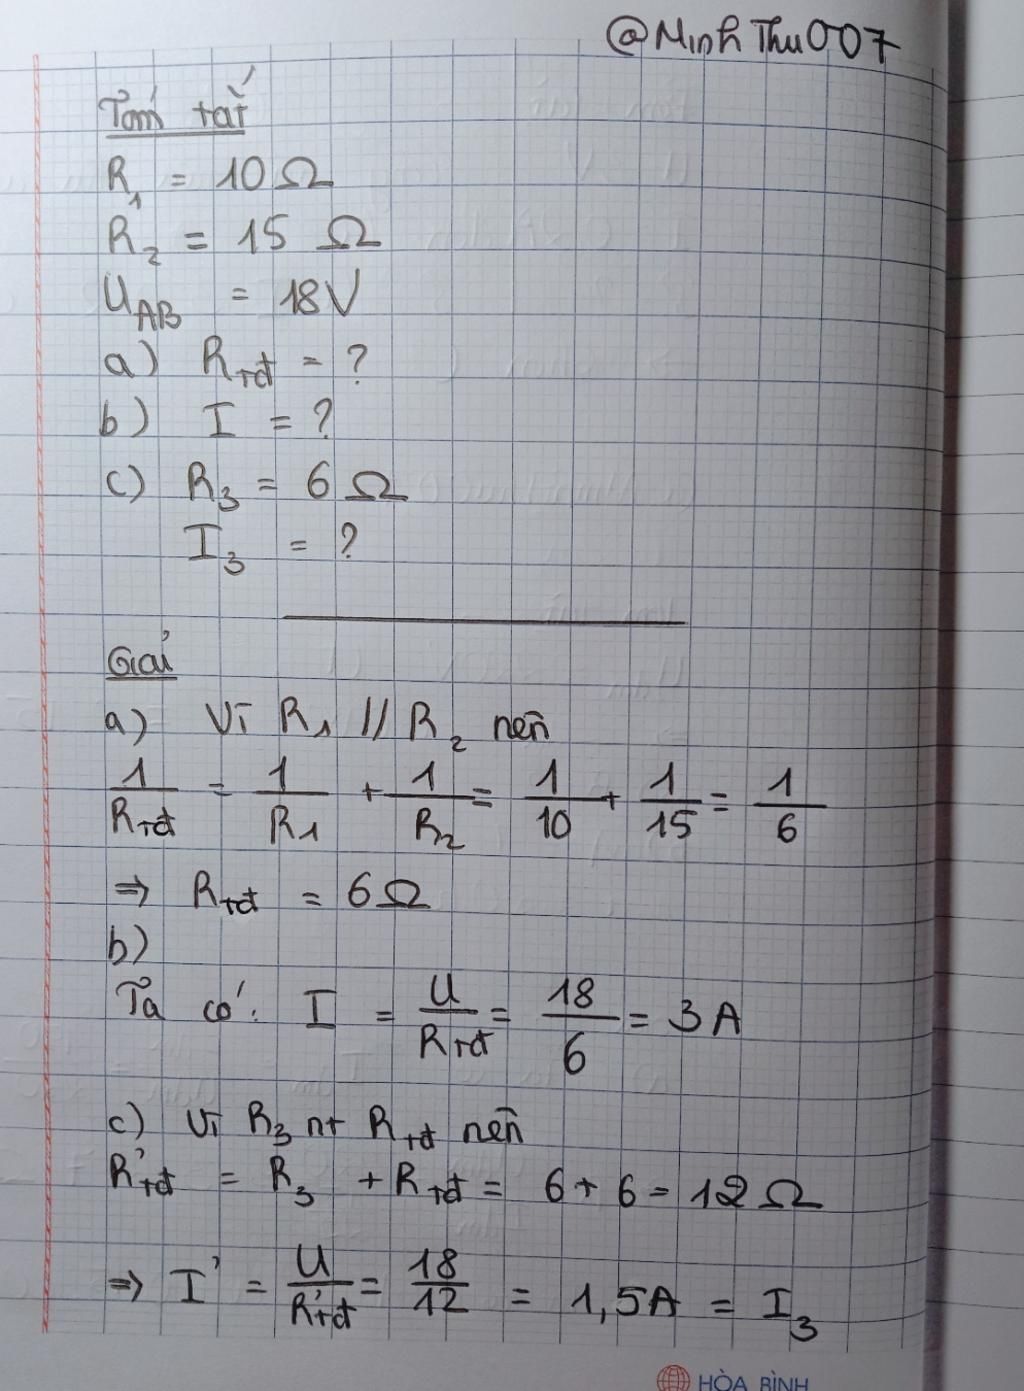 @MinhThu007
Tóm tắt
R1 = 10Ω
R2 = 15 Ω
UAB = 18V
a) Rtđ = ?
b) I = ?
c) R3 = 6 Ω
I3 = ?
Giải
a) Vì R1 // R2 nên
1/Rtđ = 1/R1 + 1/R2 = 1/10 + 1/15 = 1/6
⇒ Rtđ = 6Ω
b)
Ta có: I = U/Rtđ = 18/6 = 3A
c) Vì R3 nt Rtđ nên
R'tđ = R3 + Rtđ = 6 + 6 = 12Ω
⇒ I' = U/R'tđ = 18/12 = 1,5A = I3
HÒA BÌNH